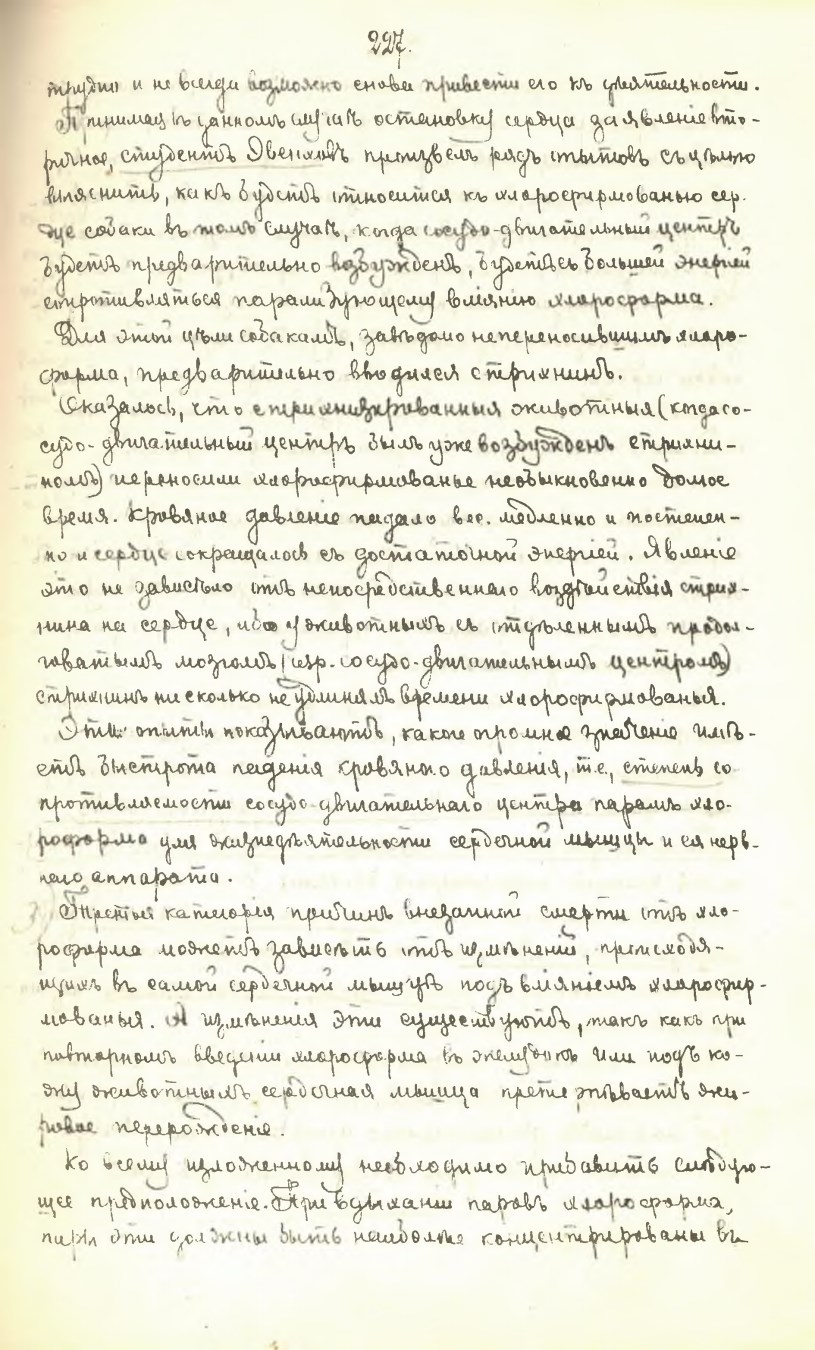 227.
трудно и не всегда возможно снова привести его къ дѣятельности.
Принимая въ данномъ случаѣ остановку сердца за явленіе вто-
ричное, студентъ произвелъ рядъ опытовъ съ цѣлью
выяснить, какъ будетъ относится къ хлороформованью сер-
дце собаки въ томъ случаѣ, когда сосудо-двигательный центръ
будетъ предварительно возбужденъ, будетъ съ большей энергіей
сопротивляться парализующему вліянію хлороформа.
Для этой цѣли собакамъ, завѣдомо непереносившимъ хлоро-
форма, предварительно вводился стрихнинъ.
Оказалось, что стрихнизированныя животныя (когда со-
судо-двигательный центръ былъ уже возбужденъ стрихни-
номъ) переносили хлороформованье необыкновенно долгое
время. Кровяное давленіе падало вес. медленно и постепен-
но и сердце сокращалось съ достаточной энергіей. Явленіе
это не зависѣло отъ непосредственнаго воздѣйствія стрих-
нина на сердце, ибо у животныхъ съ отдѣленнымъ продол-
говатымъ мозгомъ (изр. сосудо-двигательнымъ центромъ)
стрихнинъ нисколько не удлинялъ времени хлороформованья.
Эти опыты показываютъ, какое огромное значеніе имѣ-
етъ быстрота паденія кровяного давленія, т.е., степень со
противляемости сосудо-двигательнаго центра парамъ хло-
роформа для жизнедѣятельности сердечной мышцы и ея нерв-
наго аппарата.
Третья категорія причинъ внезапной смерти отъ хло-
роформа можетъ зависѣть отъ измѣненій, происходя-
щихъ въ самой сердечной мышцѣ подъ вліяніемъ хлорофор-
мованья. А измѣненія эти существуютъ, такъ какъ при
повторномъ введеніи хлороформа въ желудокъ или подъ ко-
жу животнымъ сердечная мышца претерпѣваетъ жи-
ровое перерожденіе.
Ко всему изложенному необходимо прибавить слѣдую-
щее предположеніе. При вдыханіи паровъ хлороформа,
пары эти должны быть наиболѣе концентрированы въ